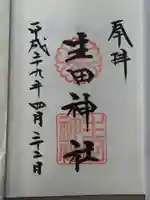 奉拝
生田神社
平成二十九年四月二十二日